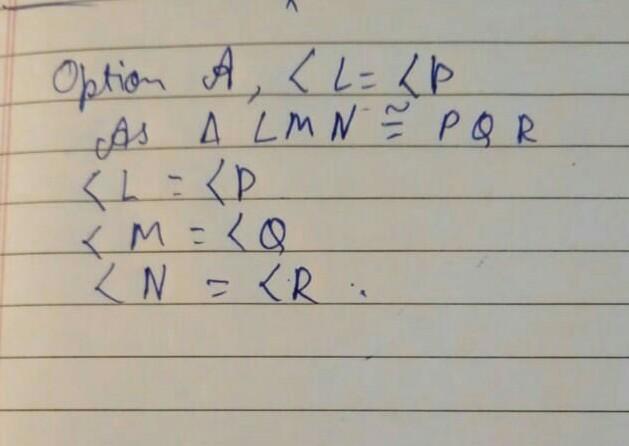 Option A, < L = < P
As Δ LMN ≅ PQR
< L = < P
< M = < Q
< N = < R .